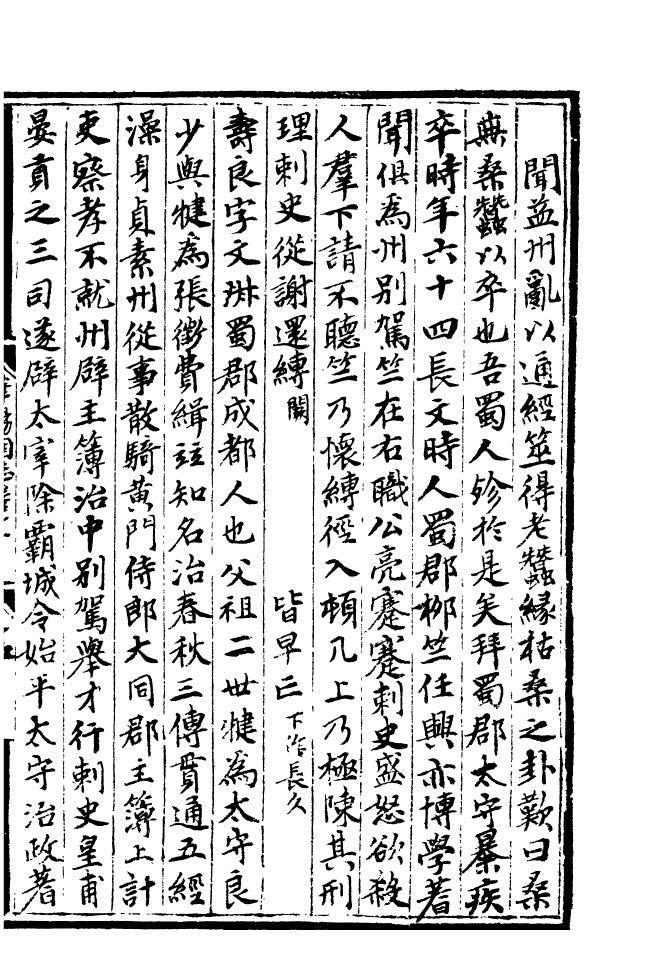 聞益州亂以通經筮得老蠶緣枯桑之卦歎曰桑
無桑蠶以卒也吾蜀人殄於是矣拜蜀郡太守暴疾
卒時年六十四長文時人蜀郡柳竺任興亦博學著
聞俱爲州別駕竺在右職公亮蹇蹇刺史盛怒欲殺
人羣下請不聽竺乃懷縛徑入頓几上乃極陳其刑
理刺史從謝還縛闕 皆早亡下作長久
壽良字文淋蜀郡成都人也父祖二世犍爲太守良
少與犍爲張徵費緝並知名治春秋三傳貫通五經
澡身貞素州從事散騎黃門侍郎大同郡主簿上計
吏察孝不就州辟主簿治中別駕舉才行刺史皇甫
晏貢之三司遂辟太宰除霸城令始平太守治政著